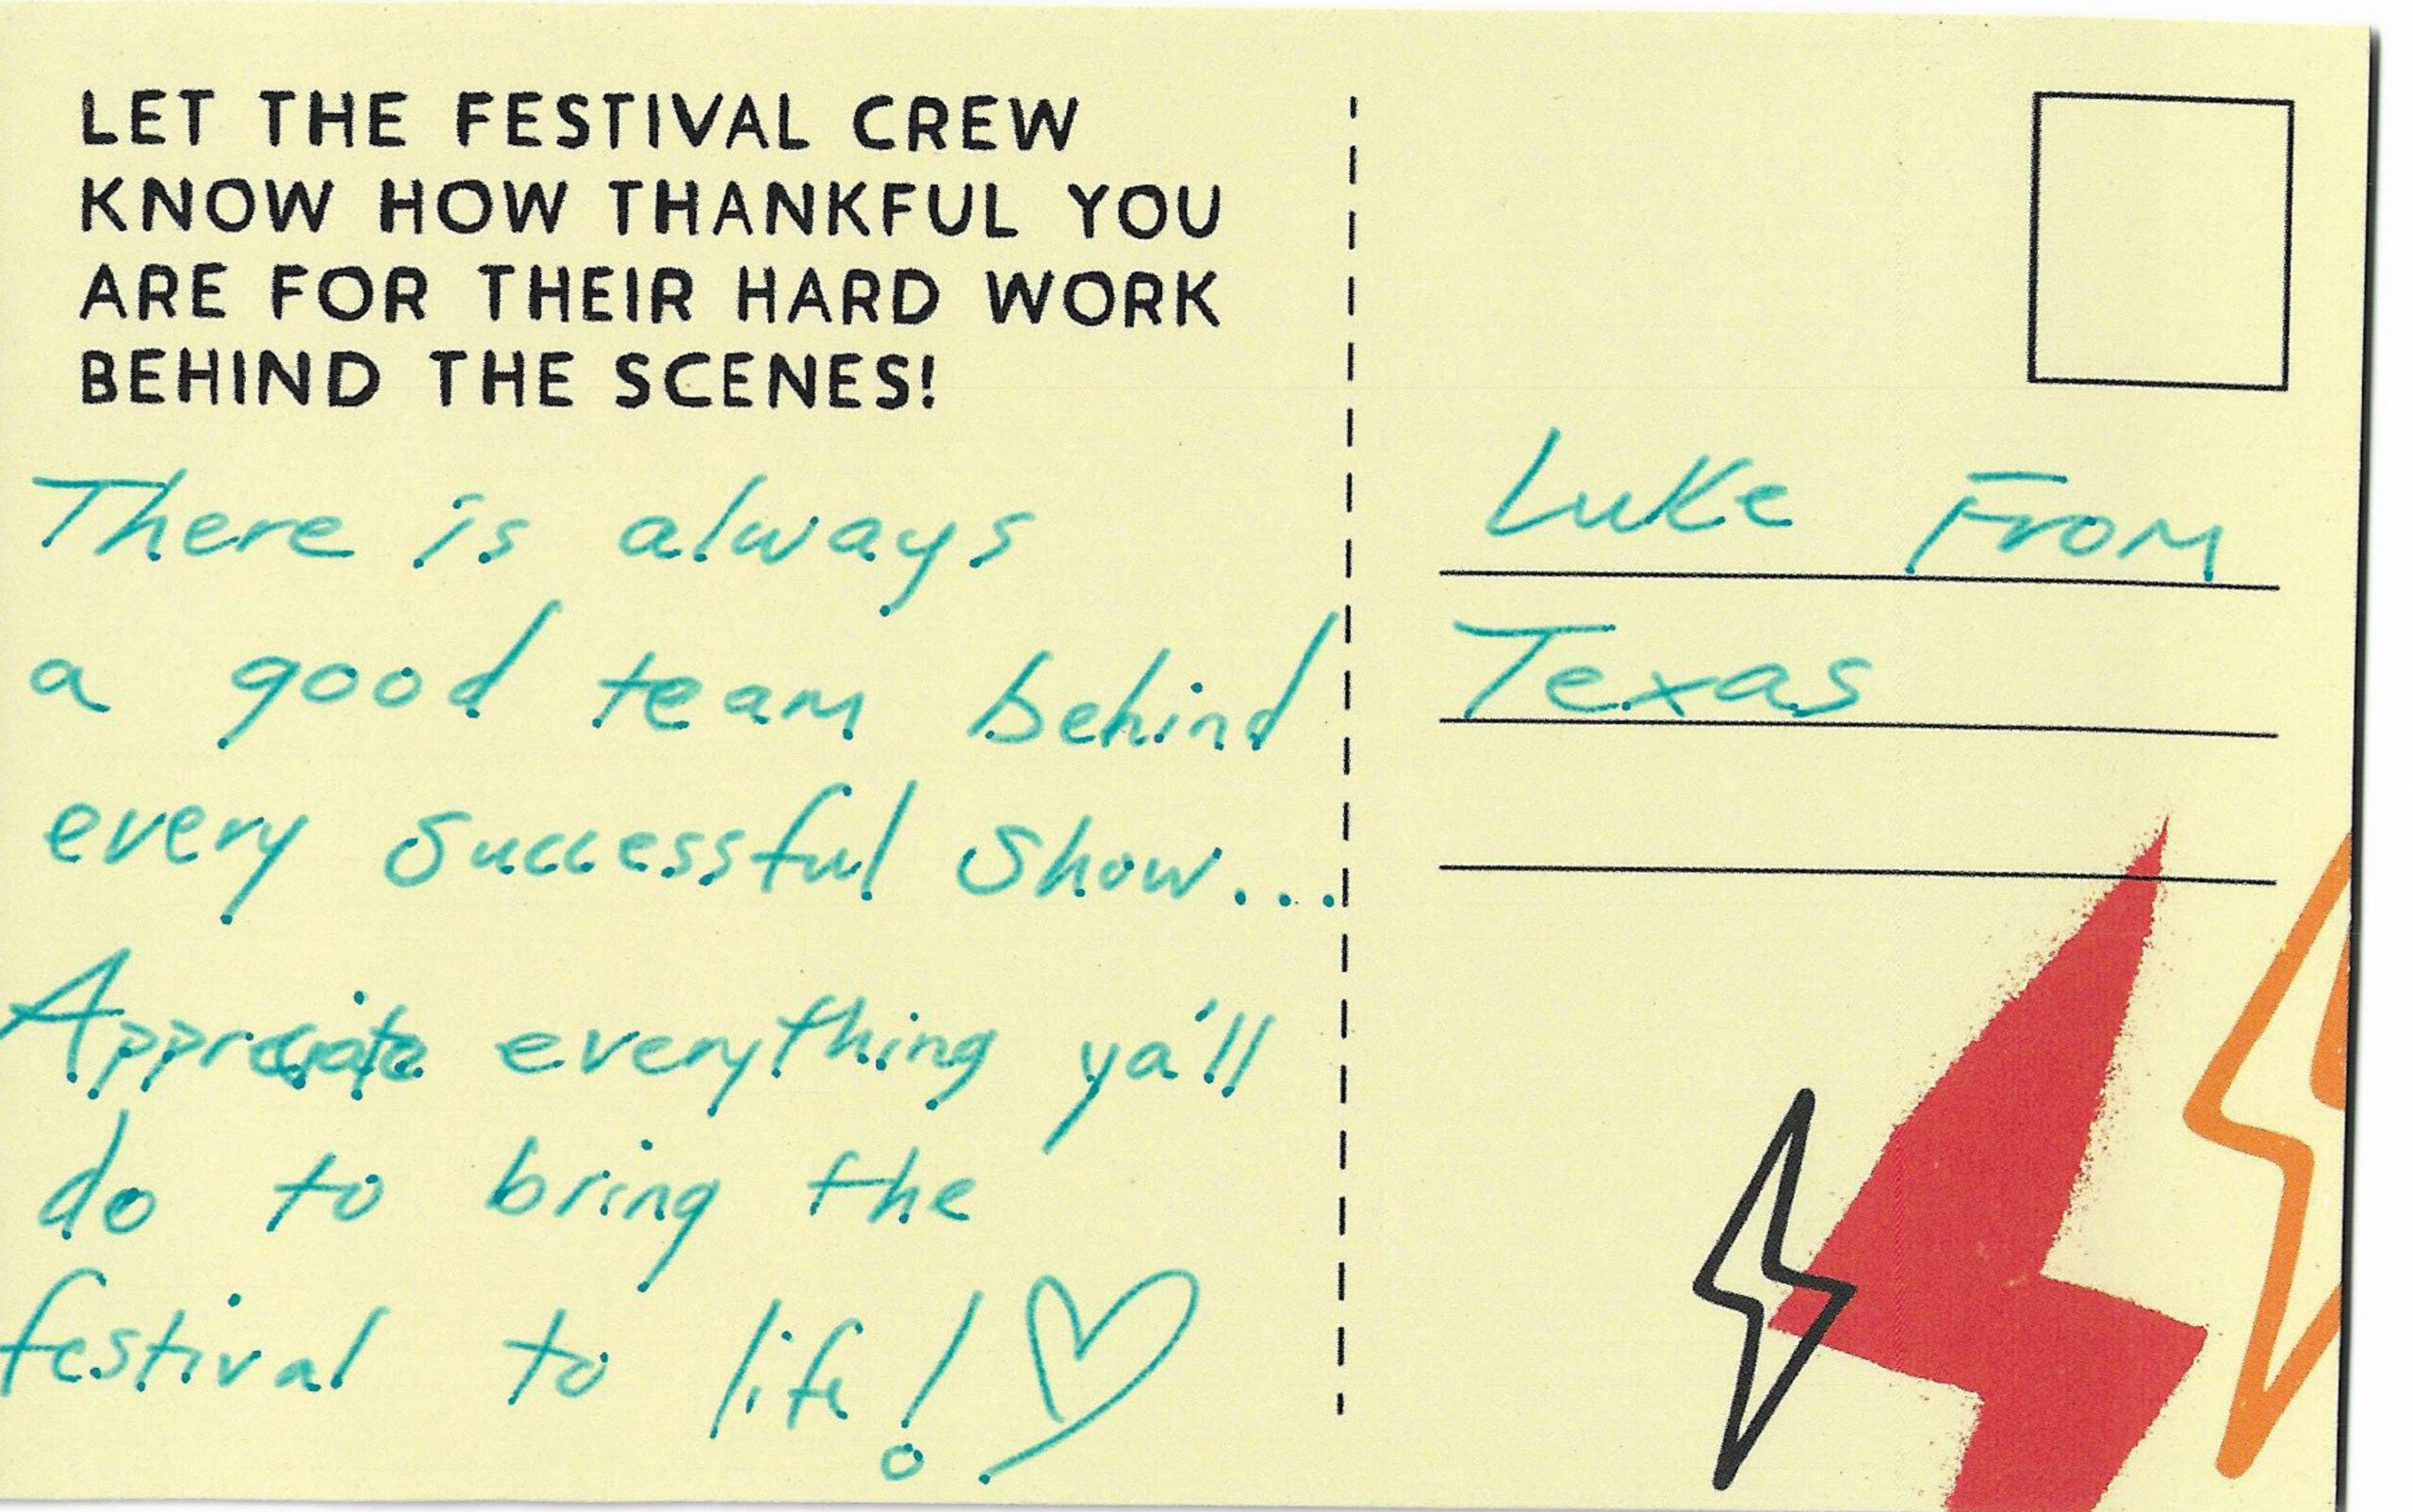 LET THE FESTIVAL CREW
KNOW HOW THANKFUL YOU
ARE FOR THEIR HARD WORK
BEHIND THE SCENES!
There is always
a good team behind
every successful show...
Appreciate everything ya'll
do to bring the
festival to life! ♡
Luke From
Texas